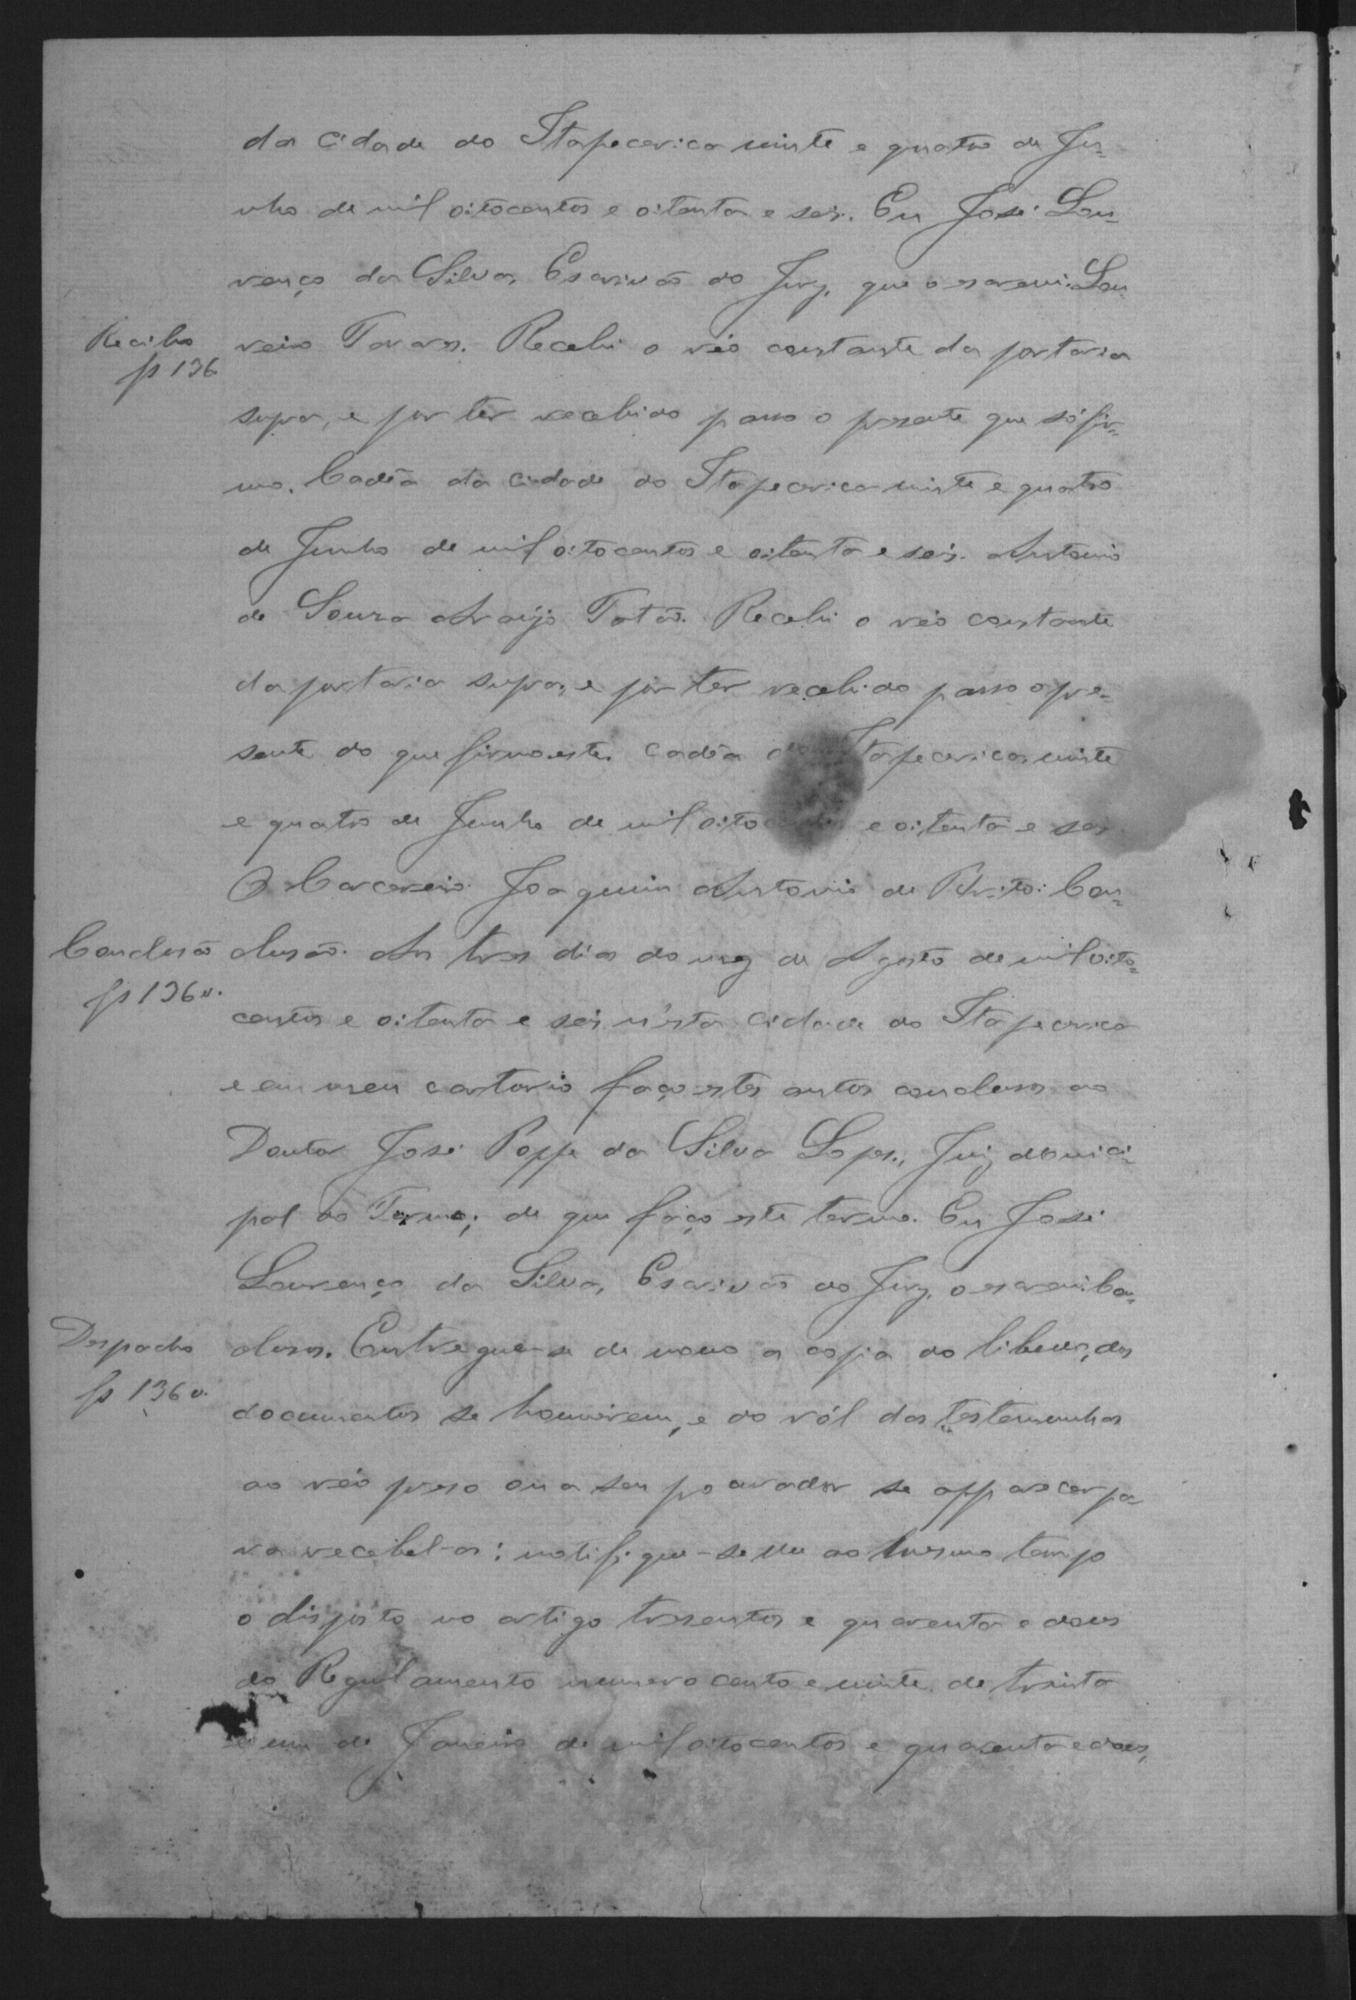 da cidade do Itapecerica vinte e quatro de Ju-
nho de mil oitocentos e oitenta e seis. Eu José Lou-
renço da Silva, Escrivão do Jury, que o escrevi. Lou
reiro Tavares. Recebi o réo constante da portaria
Recibo
fs 136
supra, e por ter recebido passo o presente que só fir-
mo. Cadêa da cidade do Itapecerica vinte e quatro
de Junho de mil oitocentos e oitenta e seis. Antonio
de Souza Araújo Totão. Recebi o réo constante
da portaria supra, e por ter recebido passo o pre-
sente do que firmo este. Cadêa Itapecerica, vinte
e quatro de Junho de mil oitocentos e oitenta e seis.
O Carcereiro Joaquim Antonio de Brito: Con-
Conclusão
fs 136v.
clusão. Aos tres dias do mez de Agosto de mil oito-
centos e oitenta e seis n'esta cidade do Itapecerica
e em meu cartorio faço estes autos conclusos ao
Doutor José Poppe da Silva Lopes, Juiz Munici-
pal do Termo; de que faço este termo. Eu José
Lourenço da Silva, Escrivão do Jury, o escrevi. Con-
Despacho
fs 136v.
clusos. Entregue-se de novo a copia do libello, dos
documentos se houverem, e do ról das testemunhas
ao réo preso ou a seu procurador se apparecer pa-
ra recebel-os; notifique-se lhe ao mesmo tempo
o disposto no artigo tresentos e quarenta e dous
do Regulamento numero cento e vinte, de trinta
e um de Janeiro de mil oitocentos e quarenta e dous,